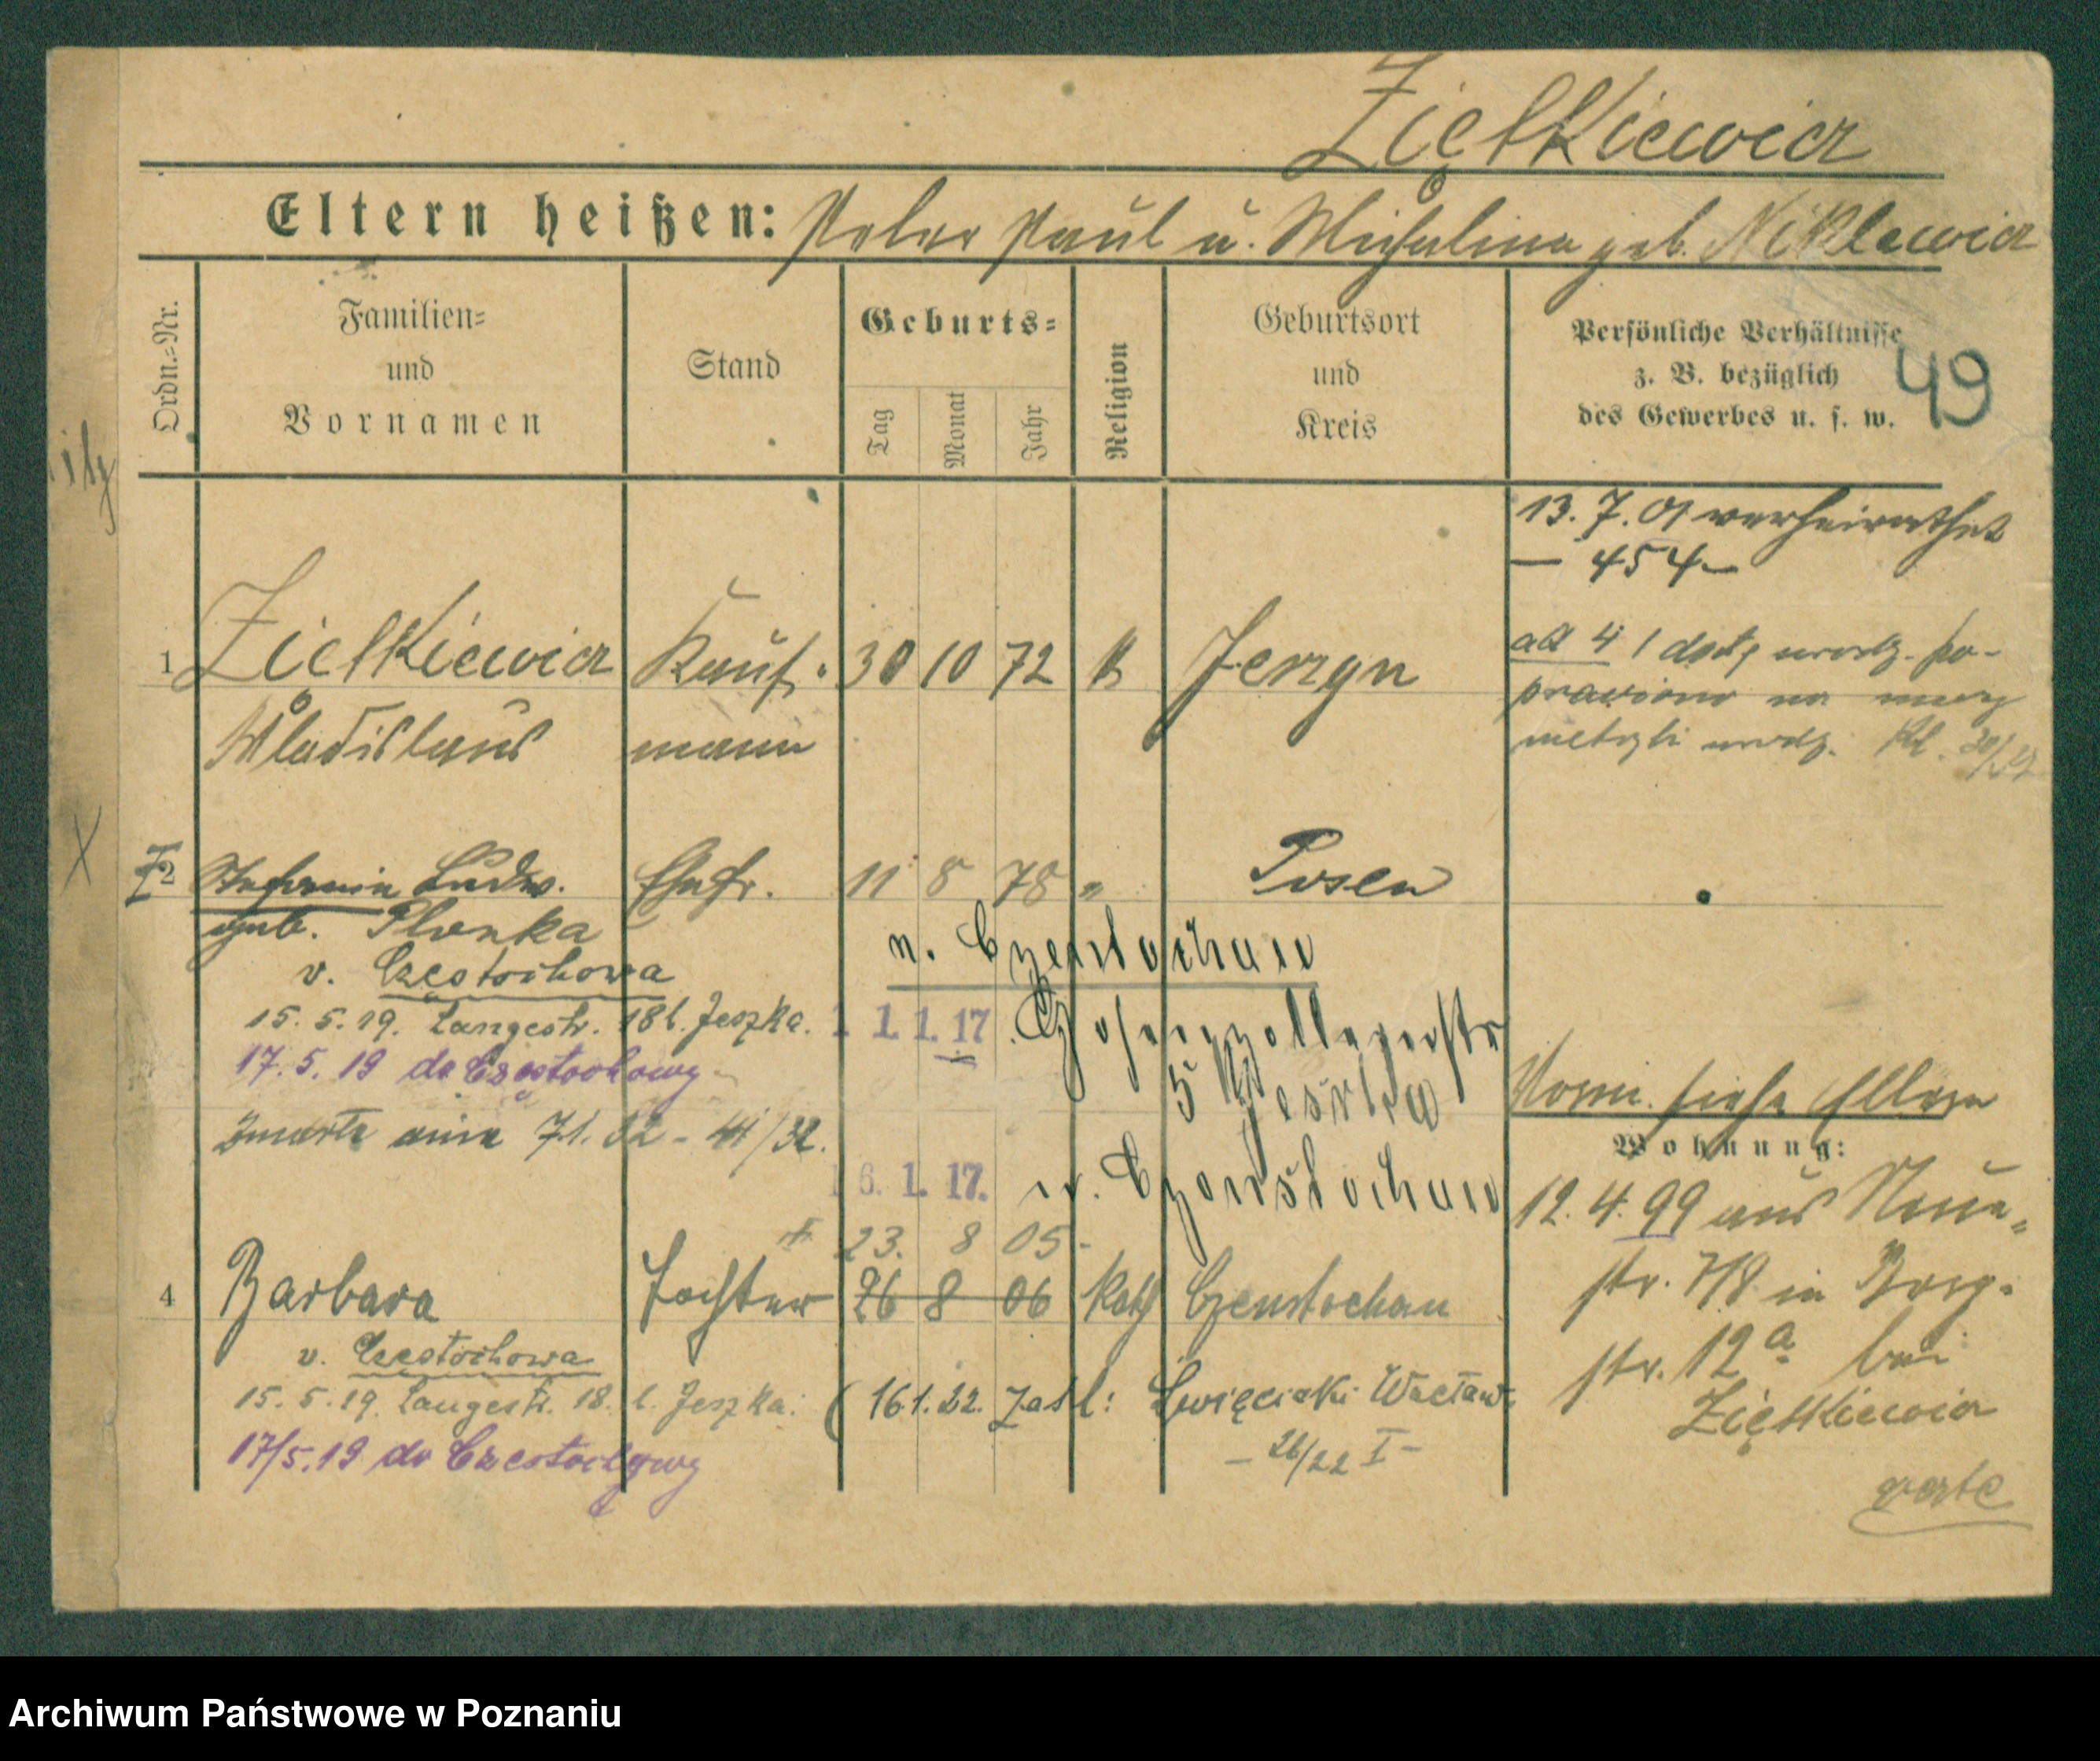 Ziętkiewicz
Eltern heißen: Peter Paul u. Michalina geb. Niklewicz
Ordn.=Nr.
Familien=
und
Vornamen
Stand
Geburts=
Tag
Monat
Jahr
Religion
Geburtsort
und
Kreis
Persönliche Verhältnisse
z. B. bezüglich
des Gewerbes u. s. w.
49
13. 7. 01 verheirathet
— 454 —
1 Zietkiewicz Kauf- 30 10 72 k
Wladislaus mann
ad 4 / datę urodz. po-
prawiono na mocy
metryki urodz.
2 Ludw. Ehefr. 11 8 78 " Posen
geb. Plonka
v. Częstochowa
n. Czenstochau
15. 5. 19. Langestr. 18 b. Jeszka. 1. 1. 17 Hohenzollernstr
5
17. 5. 19 do Częstochowy
Zmarła dnia 7.1. 32 - 41/32.
16. 1. 17. n. Czenstochau
siehe Eltern
Wohnung:
12. 4. 99 aus Neue-
str. 7/8 in Berg-
str. 12a bei
Ziętkiewicz
verte
+ 23. 8 05-
4 Barbara Tochter 26 8 06 Kath Czenstochau
v. Częstochowa
15. 5. 19. Langestr. 18. b. Jeszka. ( 16.1.22. zaśl: Święcicki Wacław
- 26/22 I -
17/5. 19 do Częstochowy
Archiwum Państwowe w Poznaniu